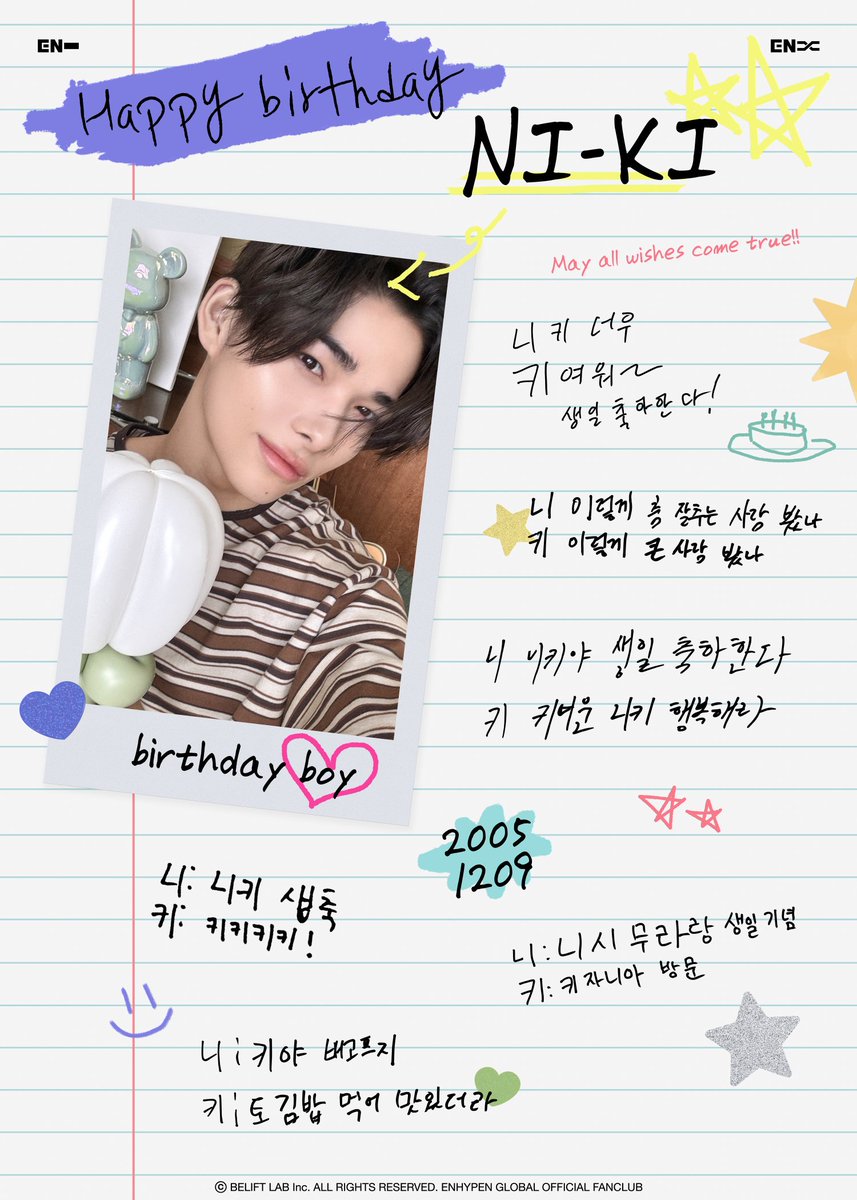 EN-
EN
Happy birthday
NI-KI
May all wishes come true!!
니 키 너우
키여워~
생일 축하한다!
니 이렇게 춤 잘추는 사람 봤나
키 이렇게 큰 사람 봤나
니 니키야 생일 축하한다
키 키여운 니키 행복해라
birthday boy
2005
1209
니: 니키 생축
키: 키키키키!
니: 니시무라랑 생일기념
키: 키자니아 방문
니; 키야 배고프지
키; 토김밥 먹어 맛있더라
© BELIFT LAB Inc. ALL RIGHTS RESERVED. ENHYPEN GLOBAL OFFICIAL FANCLUB